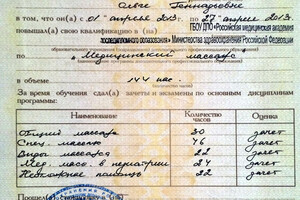 Ольге Геннадьевне
в том, что он(а) с 01 апреля 2013 г. по 27 апреля 2013 г.
повышал(а) свою квалификацию в (на) ГБОУ ДПО «Российская медицинская академия
последипломного образования» Министерства здравоохранения Российской Федерации
по «Медицинский массаж»
в объеме 144 час.
За время обучения сдал(а) зачеты и экзамены по основным дисциплинам
программы:
Наименование Количество часов Оценка
Общий массаж 30 зачет
Спец. массаж 46 зачет
Виды массажа 22 зачет
Мед. масс. в педиатрии 24 зачет
Неотложная помощь 22 зачет